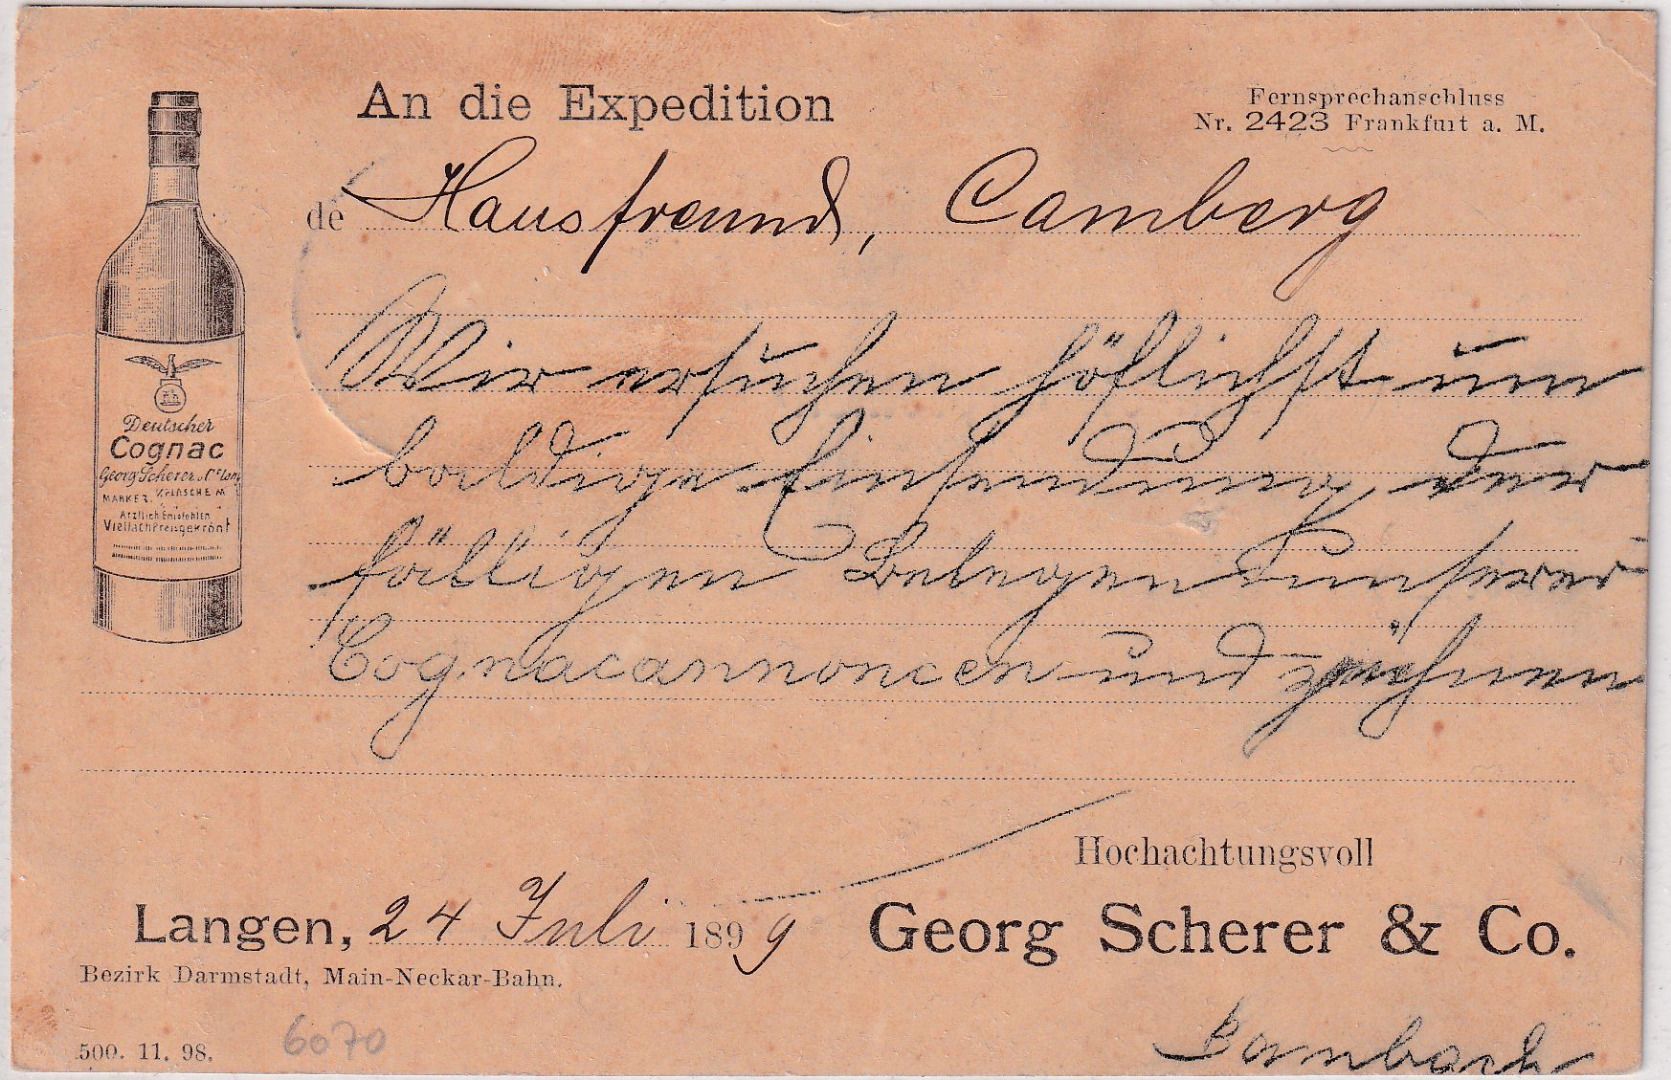 An die Expedition
Fernsprechanschluss
Nr. 2423 Frankfurt a. M.
de Hausfreund, Camberg
Wir ersuchen höflichst um
baldige Einsendung der
fälligen Belege unserer
Cognacannoncen und zeichnen
Deutscher
Cognac
Georg Scherer & Co Langen
MARKE 2.
Arztlich Empfohlen
Vielfach Preisgekrönt
Hochachtungsvoll
Langen, 24 Juli 1899
Georg Scherer & Co.
Bezirk Darmstadt, Main-Neckar-Bahn.
500. 11. 98.
6070